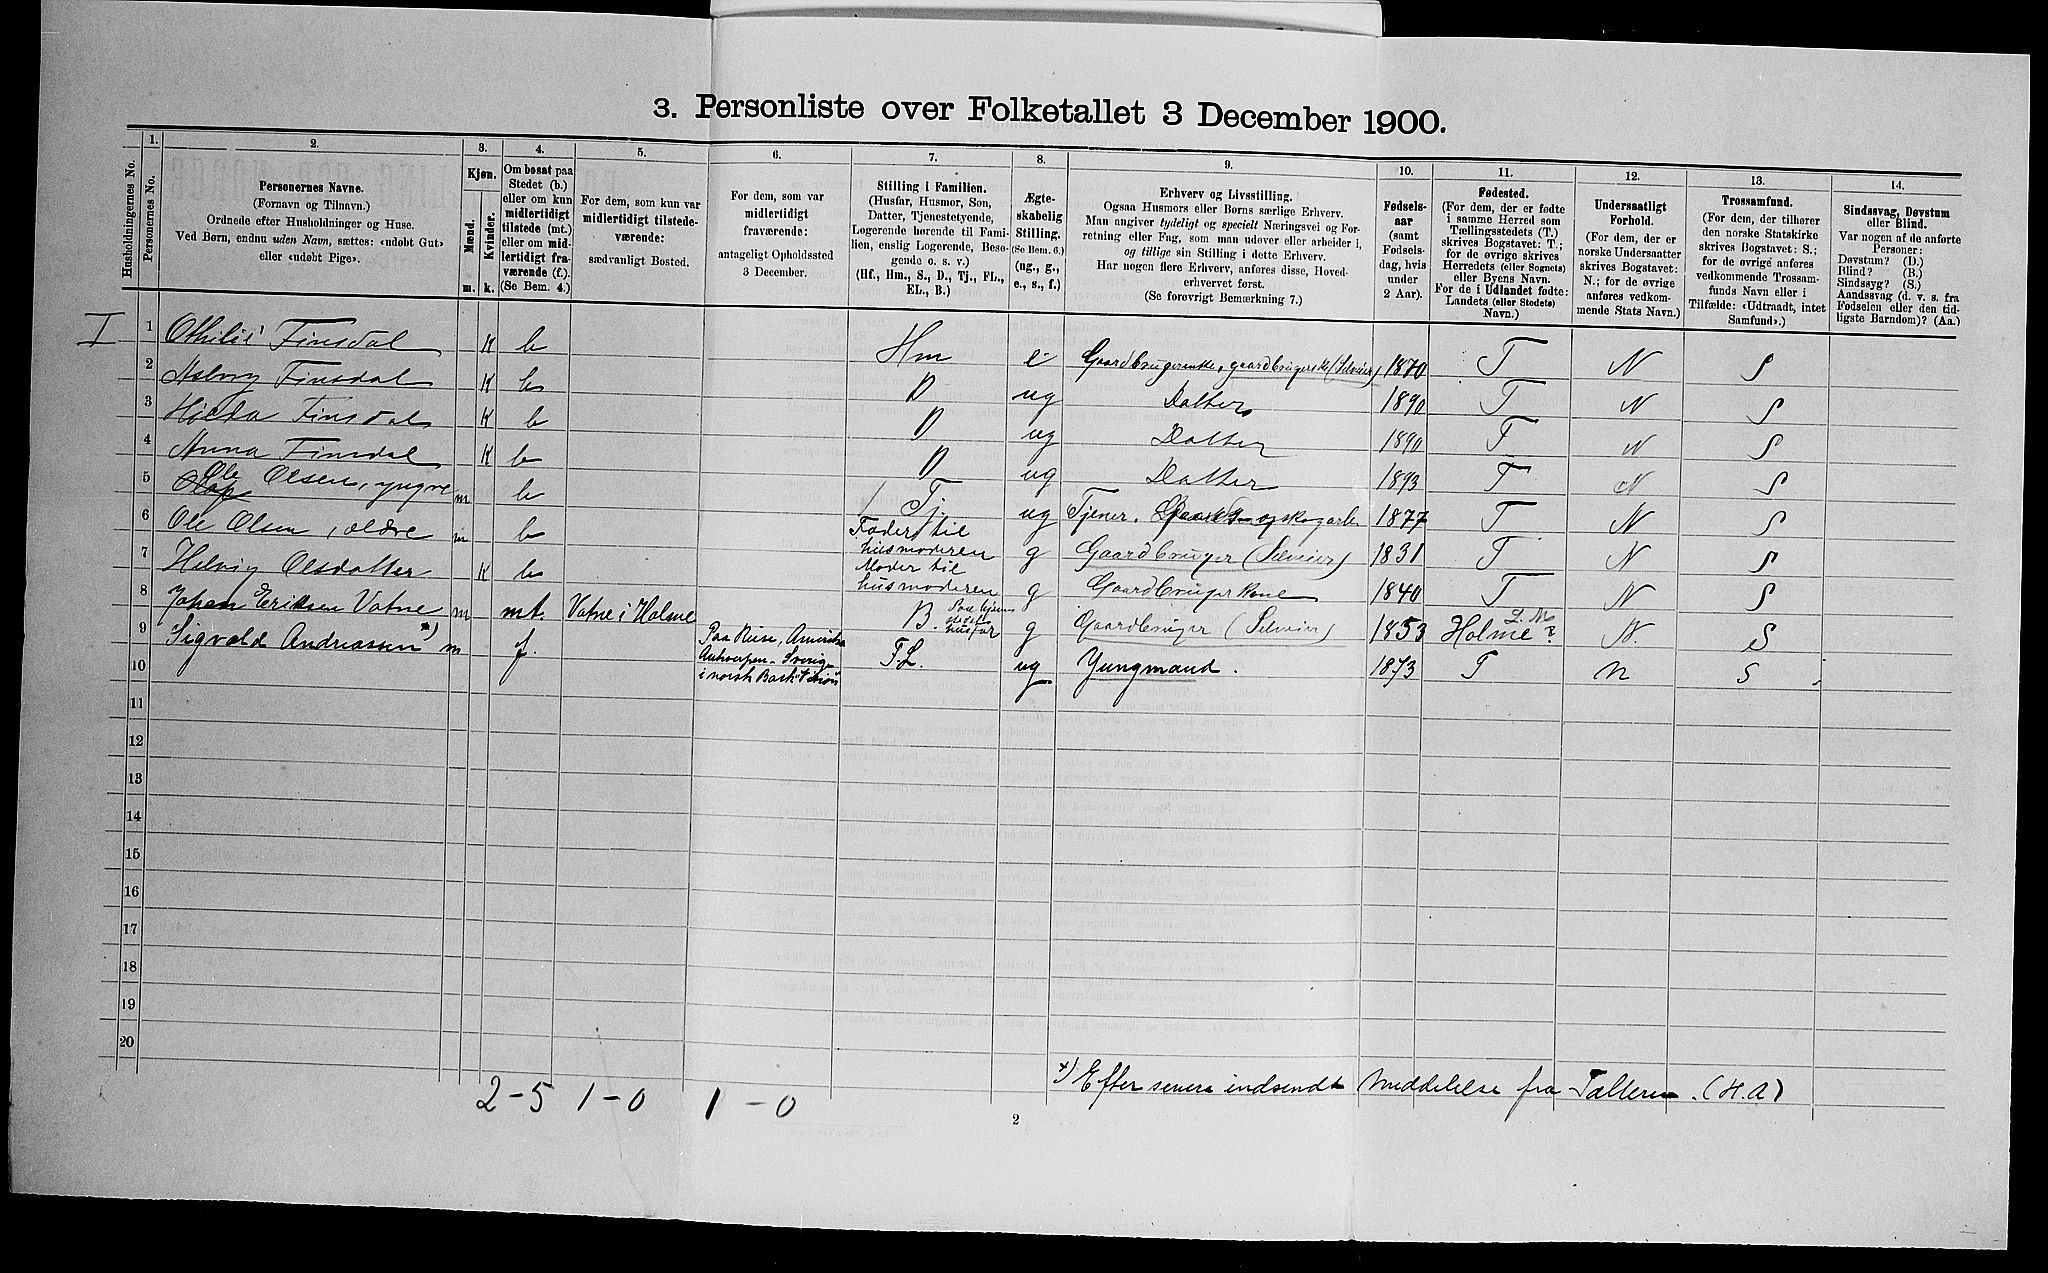 3. Personliste over Folketallet 3 December 1900.
Husholdningernes No.
1.
Personernes No.
2.
Personernes Navne.
(Fornavn og Tilnavn.)
Ordnede efter Husholdninger og Huse.
Ved Børn, endnu uden Navn, sættes: «udøbt Gut»
eller «udøbt Pige».
3.
Kjøn.
Mænd.
Kvinder.
m.
k.
4.
Om bosat paa
Stedet (b.)
eller om kun
midlertidigt
tilstede (mt.)
eller om mid-
lertidigt fra-
værende (f.).
(Se Bem. 4.)
5.
For dem, som kun var
midlertidigt tilstede-
værende:
sædvanligt Bosted.
6.
For dem, som var
midlertidigt
fraværende:
antageligt Opholdssted
3 December.
7.
Stilling i Familien.
(Husfar, Husmor, Søn,
Datter, Tjenestetyende,
Logerende hørende til Fami-
lien, enslig Logerende, Besø-
gende o. s. v.)
(Hf., Hm., S., D., Tj., FL.,
EL., B.)
8.
Ægte-
skabelig
Stilling.
(Se Bem. 6.)
(ug., g.,
e., s., f.)
9.
Erhverv og Livsstilling.
Ogsaa Husmors eller Børns særlige Erhverv.
Man angiver tydeligt og specielt Næringsvei og For-
retning eller Fag, som man udøver eller arbeider i,
og tillige sin Stilling i dette Erhverv.
Har nogen flere Erhverv, anføres disse, Hoved-
erhvervet først.
(Se forøvrigt Bemærkning 7.)
10.
Fødsels-
aar
(samt
Fødsels-
dag, hvis
under
2 Aar).
11.
Fødested.
(For dem, der er fødte
i samme Herred som
Tællingsstedets (T.)
skrives Bogstavet: T.;
for de øvrige skrives
Herredets (eller Sognets)
eller Byens Navn.
For de i Udlandet fødte:
Landets (eller Stedets)
Navn.)
12.
Undersaatligt
Forhold.
(For dem, der er
norske Undersaatter
skrives Bogstavet:
N.; for de øvrige
anføres vedkom-
mende Stats Navn.)
13.
Trossamfund.
(For dem, der tilhører
den norske Statskirke
skrives Bogstavet: S.;
for de øvrige anføres
vedkommende Trossam-
funds Navn eller i
Tilfælde: «Udtraadt, intet
Samfund».)
14.
Sindssvag, Døvstum
eller Blind.
Var nogen af de anførte
Personer:
Døvstum? (D.)
Blind? (B.)
Sindssyg? (S.)
Aandssvag (d. v. s. fra
Fødselen eller den tid-
ligste Barndom)? (Aa.)
I 1 Othilie Finsdal K b Hm e Gaardbrugerenke, gaardbrugerske (Selveier) 1870 T N S
2 Asborg Finsdal K b D ug Datter 1890 T N S
3 Hilda Finsdal K b D ug Datter 1890 T N S
4 Anna Finsdal K b D ug Datter 1893 T N S
5 Ole Olsen, yngre m b Tj. ug Tjener. Gaards og skogarb. 1877 T N S
6 Ole Olsen, ældre m b Fader til husmoderen g Gaardbruger (Selveier) 1831 T N S
7 Helvig Olsdatter K b Moder til husmoderen g Gaardbrugerkone 1840 T N S
8 Johan Eriksen Vatne m mt. Vatne i Holme B. Paa hjemstedet husfar g Gaardbruger (Selveier) 1853 Holme L. M. N. S
9 Sigvald Andreassen *) m f. Paa Reise, Amerika Antwerpen - Sverige i norsk Bark FL. ug Yungmand. 1873 T N S
10
11
12
13
14
15
16
17
18
19
20
2-5 1-0 1-0
*) Efter senere indsendt Meddelelse fra Tælleren. (H.A)
2